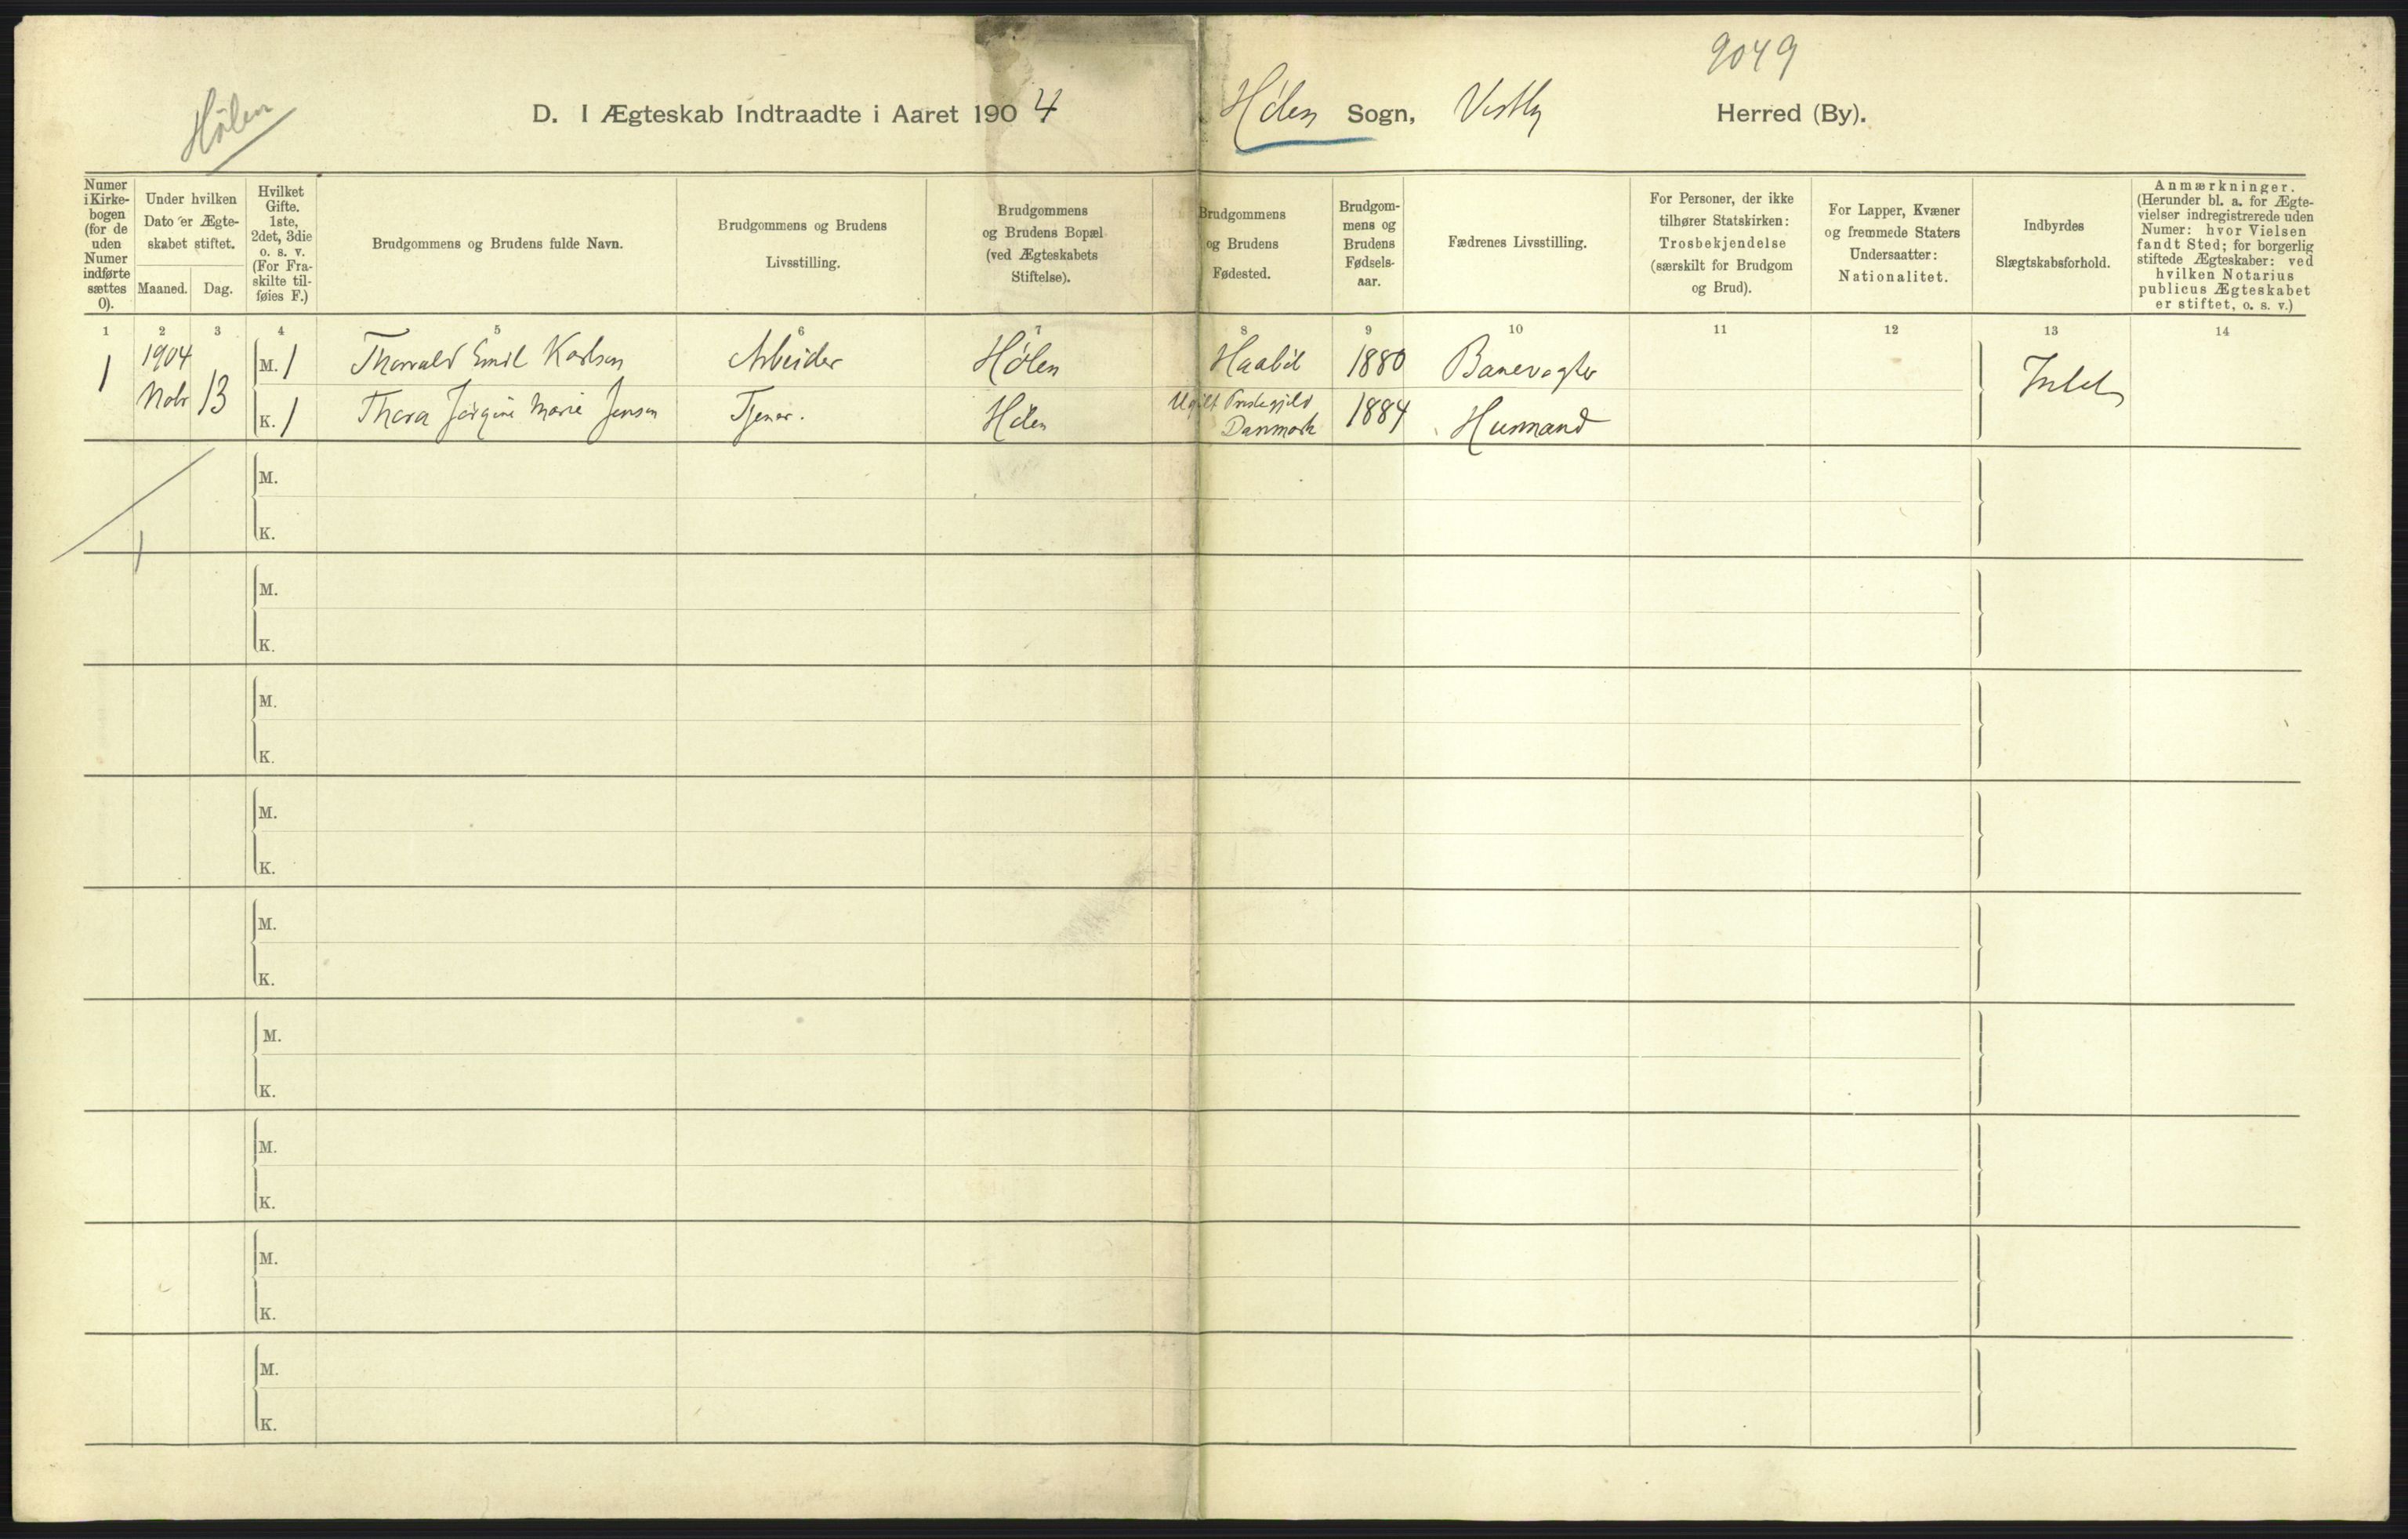 9049
Hölen
D. I Ægteskab Indtraadte i Aaret 1904 Hölen Sogn, Vestby Herred (By).
Numer i Kirkebogen (for de uden Numer indførte sættes 0).
Under hvilken Dato er Ægteskabet stiftet.
Maaned. Dag.
Hvilket Gifte. 1ste, 2det, 3die o. s. v. (For Fraskilte tilføies F.)
Brudgommens og Brudens fulde Navn.
Brudgommens og Brudens Livsstilling.
Brudgommens og Brudens Bopæl (ved Ægteskabets Stiftelse).
Brudgommens og Brudens Fødested.
Brudgommens og Brudens Fødselsaar.
Fædrenes Livsstilling.
For Personer, der ikke tilhører Statskirken: Trosbekjendelse (særskilt for Brudgom og Brud).
For Lapper, Kvæner og fremmede Staters Undersaatter: Nationalitet.
Indbyrdes Slægtskabsforhold.
Anmærkninger. (Herunder bl. a. for Ægtevielser indregistrerede uden Numer: hvor Vielsen fandt Sted; for borgerlig stiftede Ægteskaber: ved hvilken Notarius publicus Ægteskabet er stiftet, o. s. v.)
1 2 3 4 5 6 7 8 9 10 11 12 13 14
1 1904 Novbr 13 M. 1 Thorvald Emil Karlsen Arbeider Hölen Haabøl 1880 Banevogter Intet
K. 1 Thora Jörgine Marie Jensen Tjener. Hölen Ugilt Præstegjeld Danmark 1884 Husmand
M.
K.
M.
K.
M.
K.
M.
K.
M.
K.
M.
K.
M.
K.
M.
K.
M.
K.